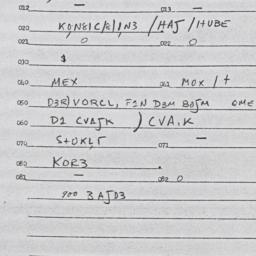 012 — 013 —
020 KONEIC/R/IN3 /HAJ /HUBE
021 0 022 0
030 $
040 MEX 041 MOX / t
050 D3R)VORCL, F2N D3M BOJM OME
060 D2 CVAJK ) CVA.K
070 S+OKLT 071 —
080 KOR3 .
081 — 082 0
900 3 AJD3